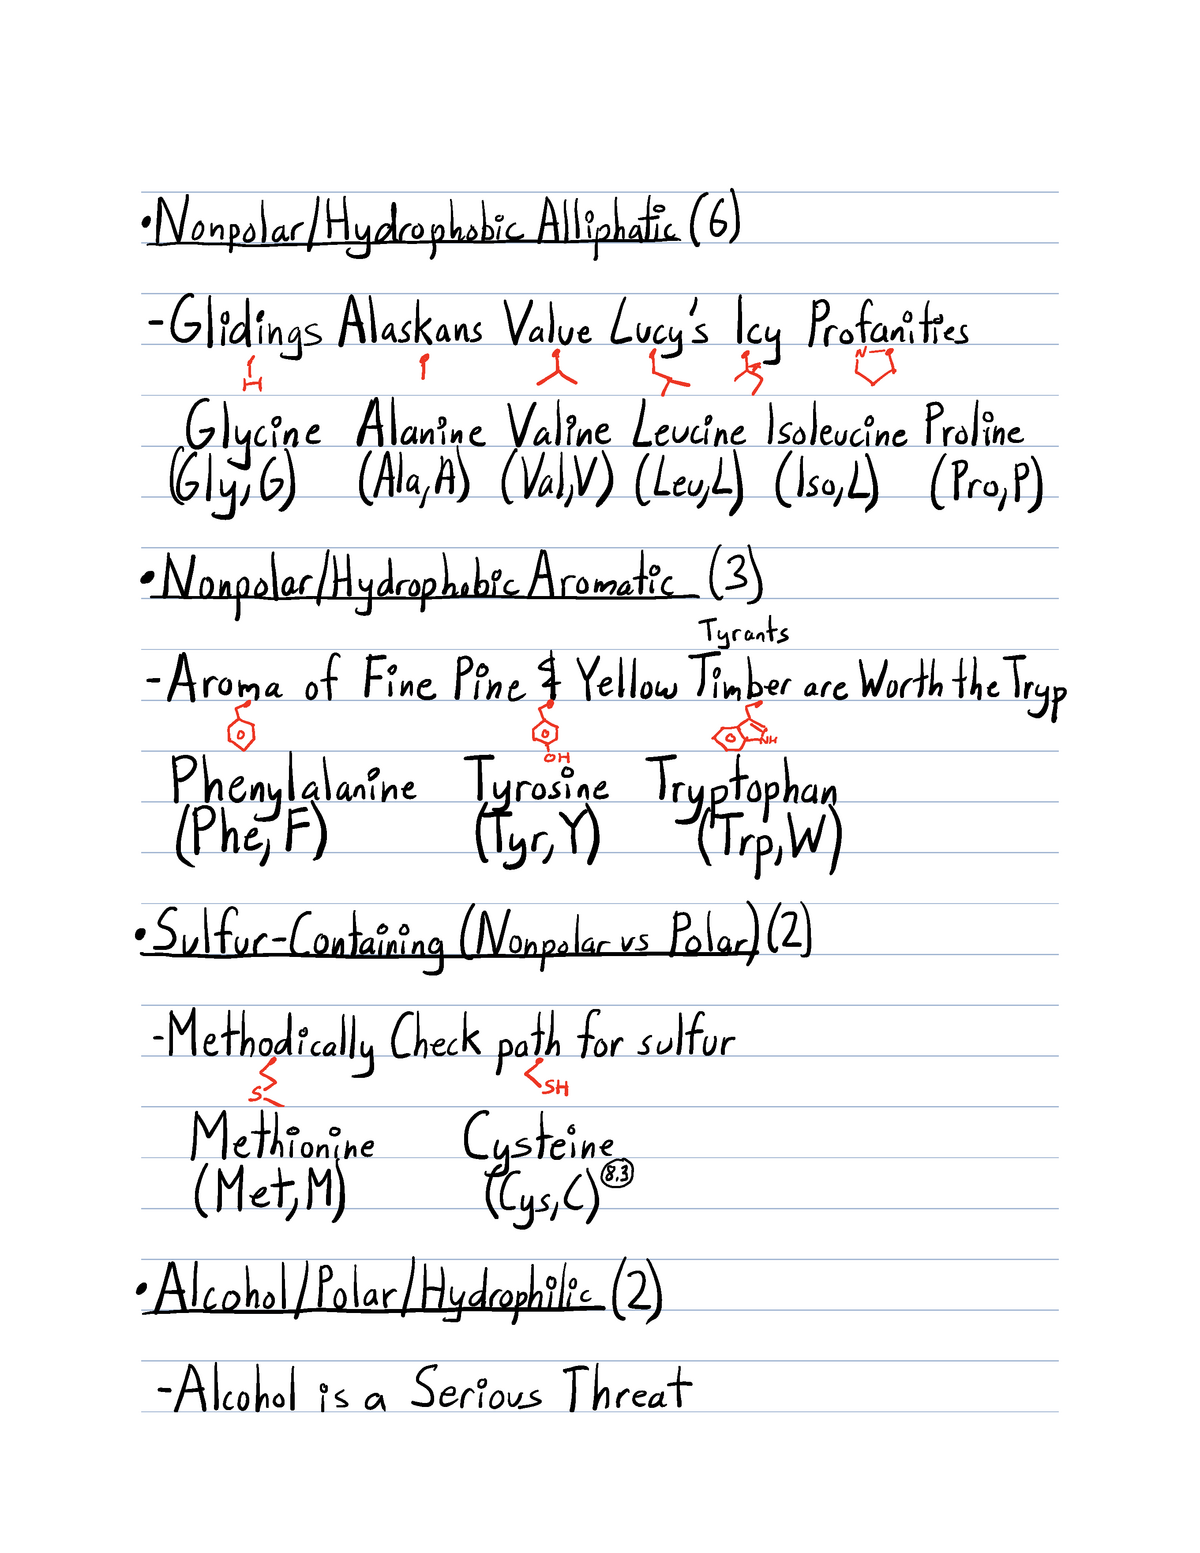 •Nonpolar/Hydrophobic Alliphatic (6)
-Glidings Alaskans Value Lucy's Icy Profanities
H N
Glycine Alanine Valine Leucine Isoleucine Proline
(Gly, G) (Ala, A) (Val, V) (Leu, L) (Iso, L) (Pro, P)
•Nonpolar/Hydrophobic Aromatic (3)
Tyrants
-Aroma of Fine Pine & Yellow Timber are Worth the Tryp
NH
OH
Phenylalanine Tyrosine Tryptophan
(Phe, F) (Tyr, Y) (Trp, W)
•Sulfur-Containing (Nonpolar vs Polar) (2)
-Methodically Check path for sulfur
S SH
Methionine Cysteine
(Met, M) (Cys, C) 8.3
•Alcohol/Polar/Hydrophilic (2)
-Alcohol is a Serious Threat